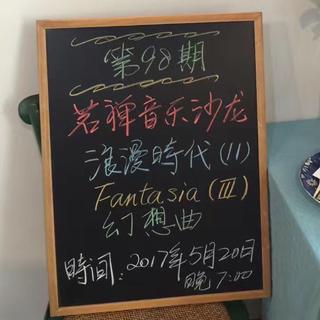 第98期
茗禅音乐沙龙
浪漫時代(11)
Fantasia(III)
幻想曲
時间:2017年5月20日
晚7:00